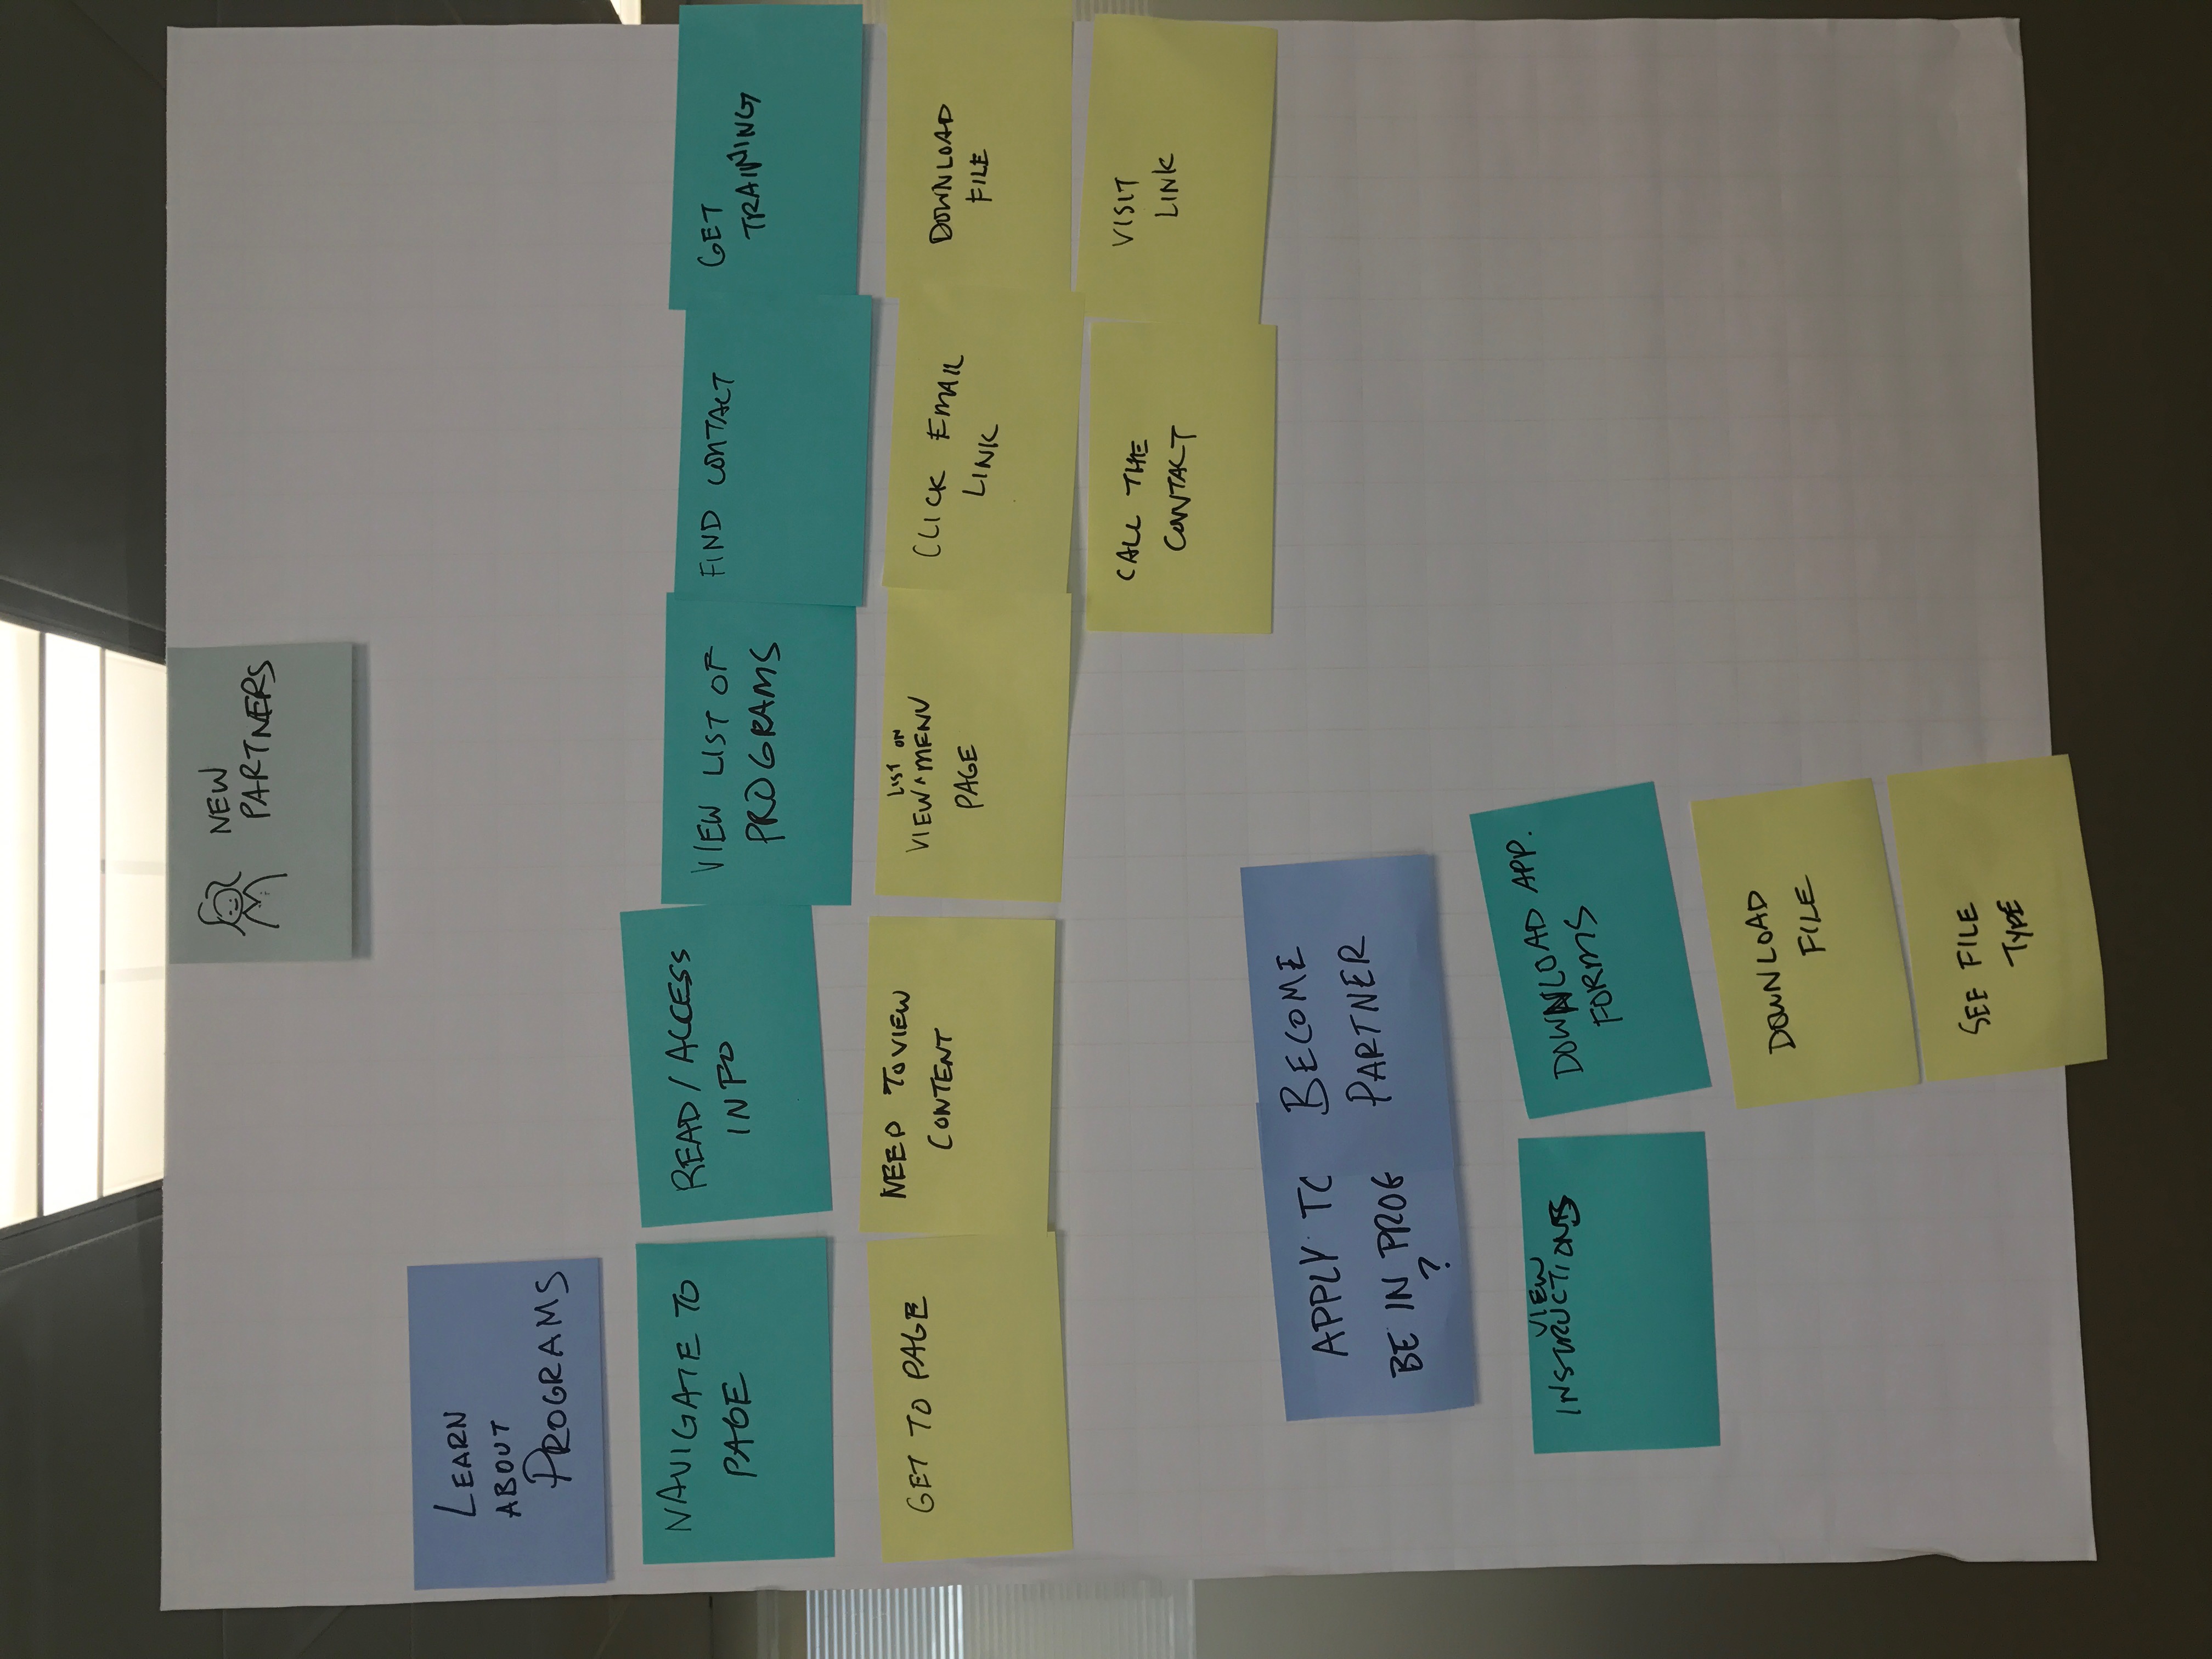 NEW
PARTNERS
LEARN
ABOUT
PROGRAMS
NAVIGATE TO
PAGE
READ / ACCESS
INFO
VIEW LIST OF
PROGRAMS
FIND CONTACT
GET
TRAINING
GET TO PAGE
NEED TO VIEW
CONTENT
LIST ON
VIEW ^ MENU
PAGE
CLICK EMAIL
LINK
DOWNLOAD
FILE
CALL THE
CONTACT
VISIT
LINK
APPLY TO
BE IN PROG
?
BECOME
PARTNER
VIEW
INSTRUCTIONS
DOWNLOAD APP.
FORMS
DOWNLOAD
FILE
SEE FILE
TYPE